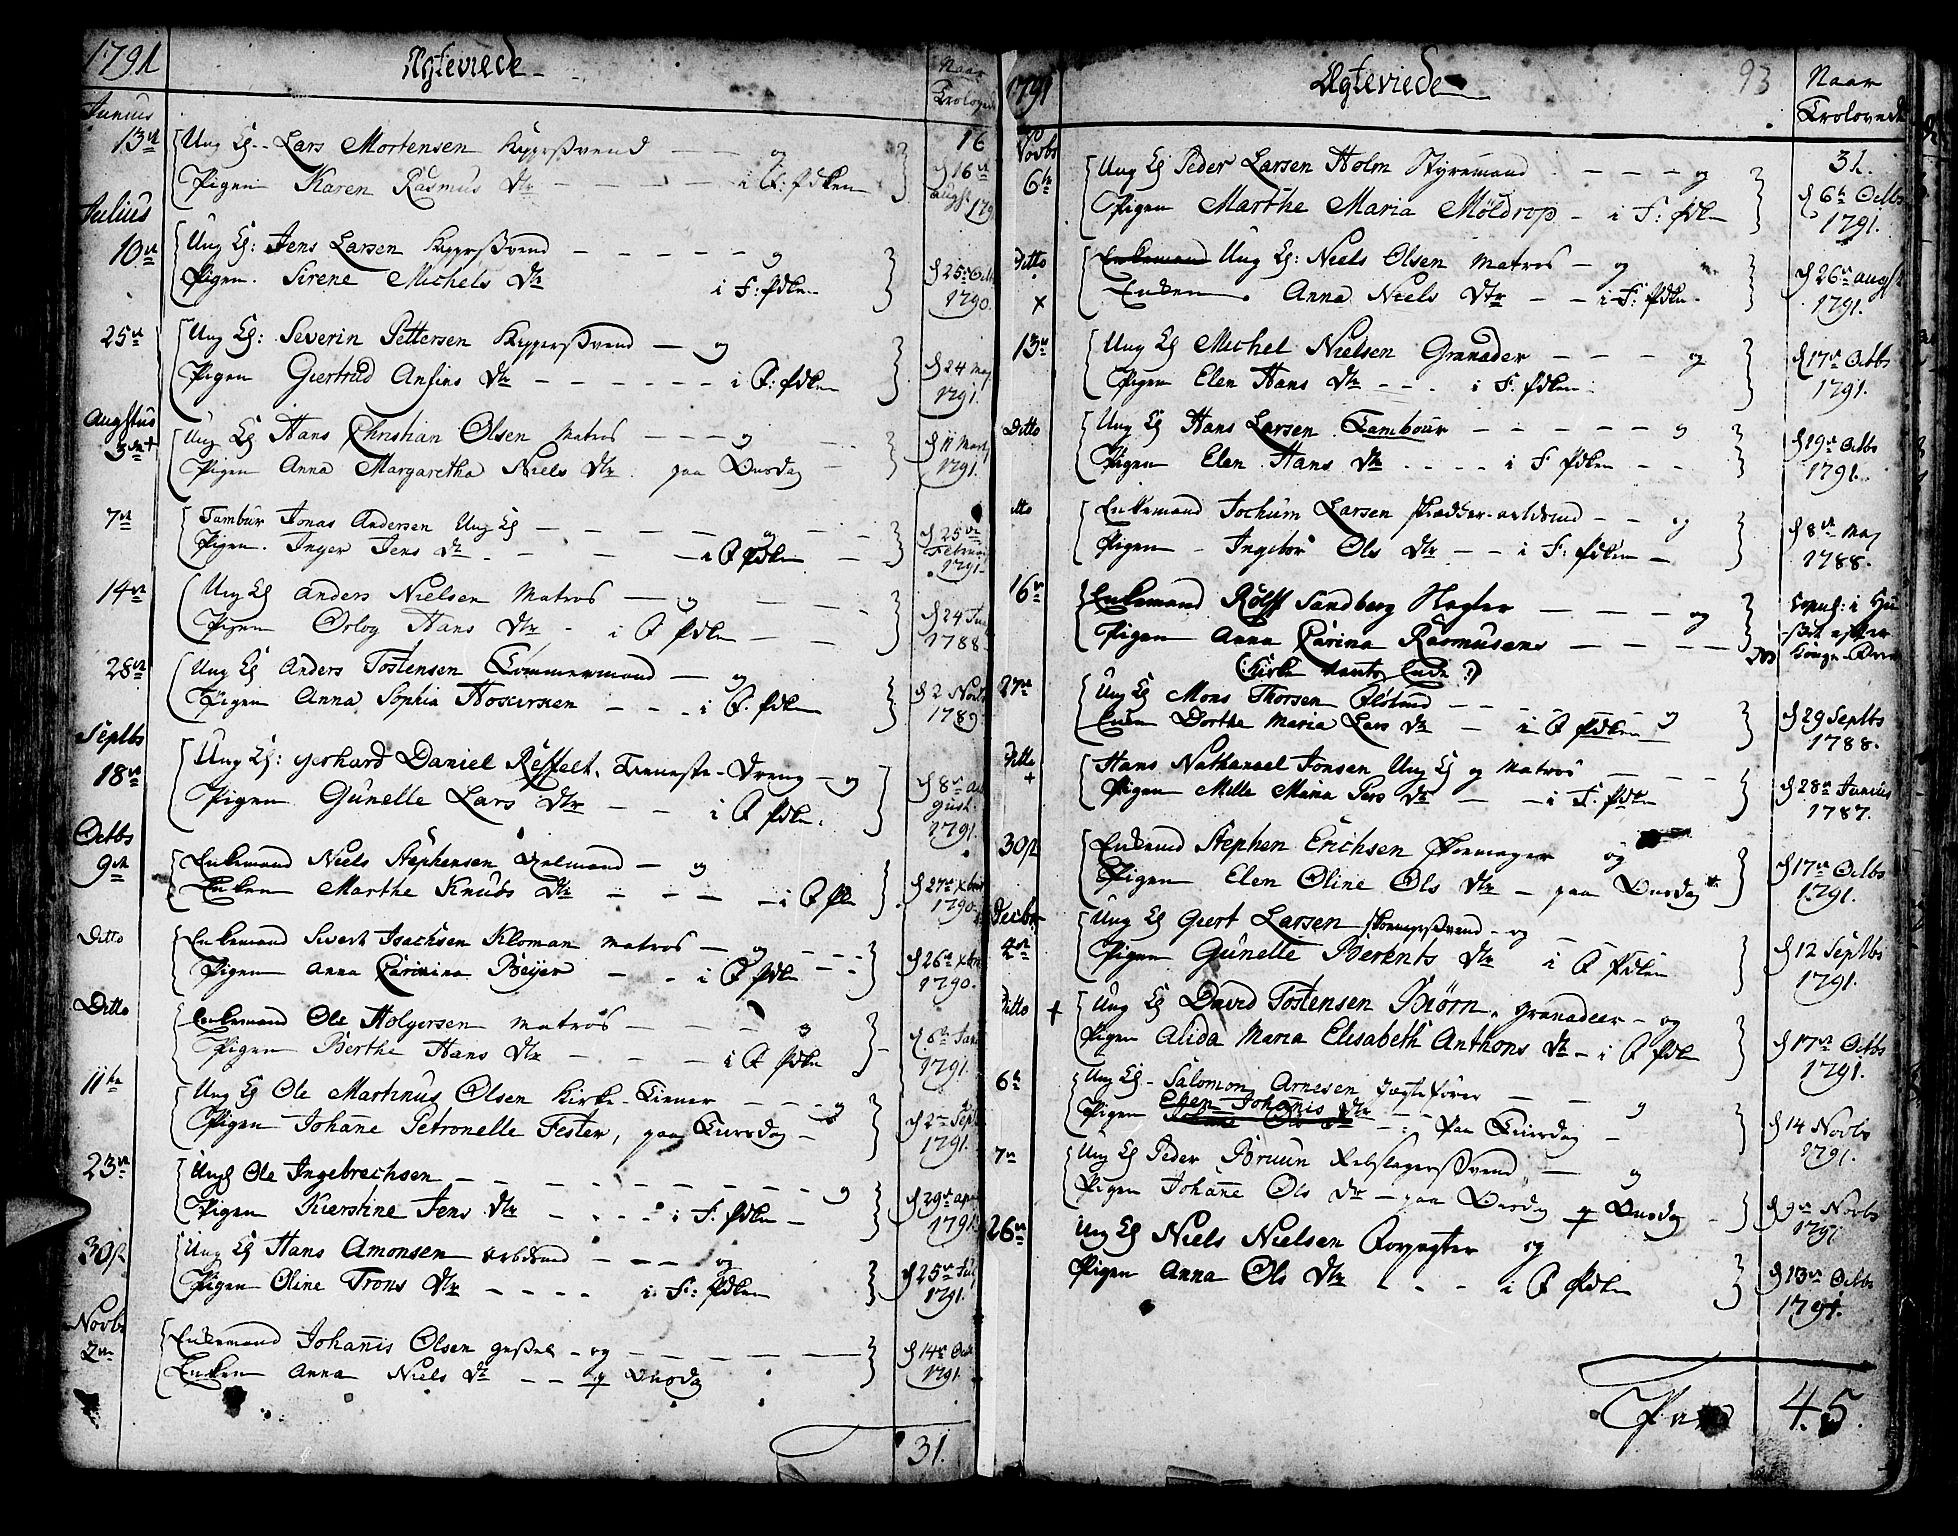 1791
Ægteviede
Naar
Trolovede
Junius
13de Ung K. Lars Mortensen Kypersvend og
Pigen Karen Rasmus Dtr i F: Prken
16
d 16de
Augst 179
Julius
10de Ung K: Jens Larsen Kypersvend og
Pigen Sirene Michels Dtr i F: Prken
d 25de Octb
1790.
25de Ung K: Severin Pettersen Kypersvend og
Pigen Giertrud Ansins Dtr i F: Prken
d 24 Maj
1791.
Augstus
3die + Ung K Hans Christian Olsen Matros og
Pigen Anna Margaretha Niels Dtr paa Onsdag
d 11 Marty
1791.
7de Tambur Jonas Andersen Ung K og
Pigen Inger Jens Dtr i F Prken
d 25de
Februar
1791.
14de Ung K Anders Nielsen Matros og
Pigen Orloy Hans Dtr i F Prken
d 24 Juni
1788
28de Ung K Anders Tostensen Tømmermand og
Pigen Anna Sophia i F. Prken
d 2 Novb
1789
Septbr
18de Ung K: Gerhard Daniel Reffelt, Tieneste-Dreng og
Pigen Gunelle Lars Dtr i F Prken.
d 8de Au
gust.
1791.
Octbs
9de Enkemand Niels Stephensen og
Enken Marthe Knuds Dtr i F Prk
d 27de Xbris
1790.
Ditto Enkemand Sivert Isachsen Kloman Matros og
Pigen Anna Carinina Beyer i F Prken
d 26de Xbris
1790.
Ditto Enkemand Ole Holgersen Matros og
Pigen Berthe Hans Dtr i F Prken
d 6te Janu
1791.
11te Ung K Ole Martinus Olsen Kirke-Tiener og
Pigen Johane Petronelle Fester, paa Tiirsdag
d 2de Septb
1791.
23de Ung K Ole Ingebrechsen og
Pigen Kierstine Jens Dtr i F: Prken
d 29de April
1791.
30te Ung K Hans Amonsen Arbdmd og
Pigen Oline Trons Dtr i F: Prken
d 25de July
1791.
Novbs
2den Enkemand Johanis Olsen og
Enken Anna Niels Dtr p Onsdag
d 14de Octb
1791.
31.
1791
Ægteviede
93
Naar
Trolovede
Novbs
6te Ung K Peder Larsen Holm Styremand og
Pigen Marthe Maria Møldrop i F: Prken
31.
d 6te Octbs
1791.
Ditto Enkemand Ung K: Niels Olsen Matros og
x Enken Anna Niels Dtr i F: Prken
d 26de Augst
1791.
13de Ung K Michel Nielsen Granader og
Pigen Elen Hans Dtr i F. Prken
d 17de Octbs
1791.
Ditto Ung K Hans Larsen Tambour og
Pigen Elen Hans Dtr i F Prken
d 19de Octbs
1791.
Ditto Enkemand Jochum Larsen og
Pigen Ingebor Ols Dtr i F: Prken
d 8de Maj
1788.
16de Enkemand Rolff Sandberg Slagter og
Pigen Anna Carina Rasmusens
Copul: i Hu
set efter
Konge-Brev
27de Ung K Mons Thorsen og
Enken Dorthe Maria Lars Dtr i F Prken
d 29 Septbs
1788.
Ditto
+ Hans Nathanael Jonsen Ung K og Matros
Pigen Mille Maria Pers Dtr i F. Prken
d 28de Junius
1787.
30te Enkemd Stephen Erichsen Skomager og
Pigen Elen Oline Ols Dtr paa Onsdag
d 17de Octbs
1791.
Decbr
4de Ung K Giert Larsen Skomagersvend og
Pigen Gunelle Berents Dtr i F Prken
d 12 Septbs
1791.
Ditto + Ung K David Tostensen Biørn, Granadeer og
Pigen Alida Maria Elisabeth Anthons Dtr i F Prken
d 17de Octbs
1791.
6te Ung K Salomon Arnesen Jagtefører og
Pigen Elen Johanis Dtr paa Tiirsdag
d 14 Novbs
1791.
7de Ung K Peder Bruun Rebslagersvend og
Pigen Johane Ols Dtr paa Onsdag p Onsdag
d 9de Novbs
1791
26de Ung K Niels Nielsen Forpagter og
Pigen Anna Ols Dtr i F Prken
d 13de Octbs
1791.
Par 45.